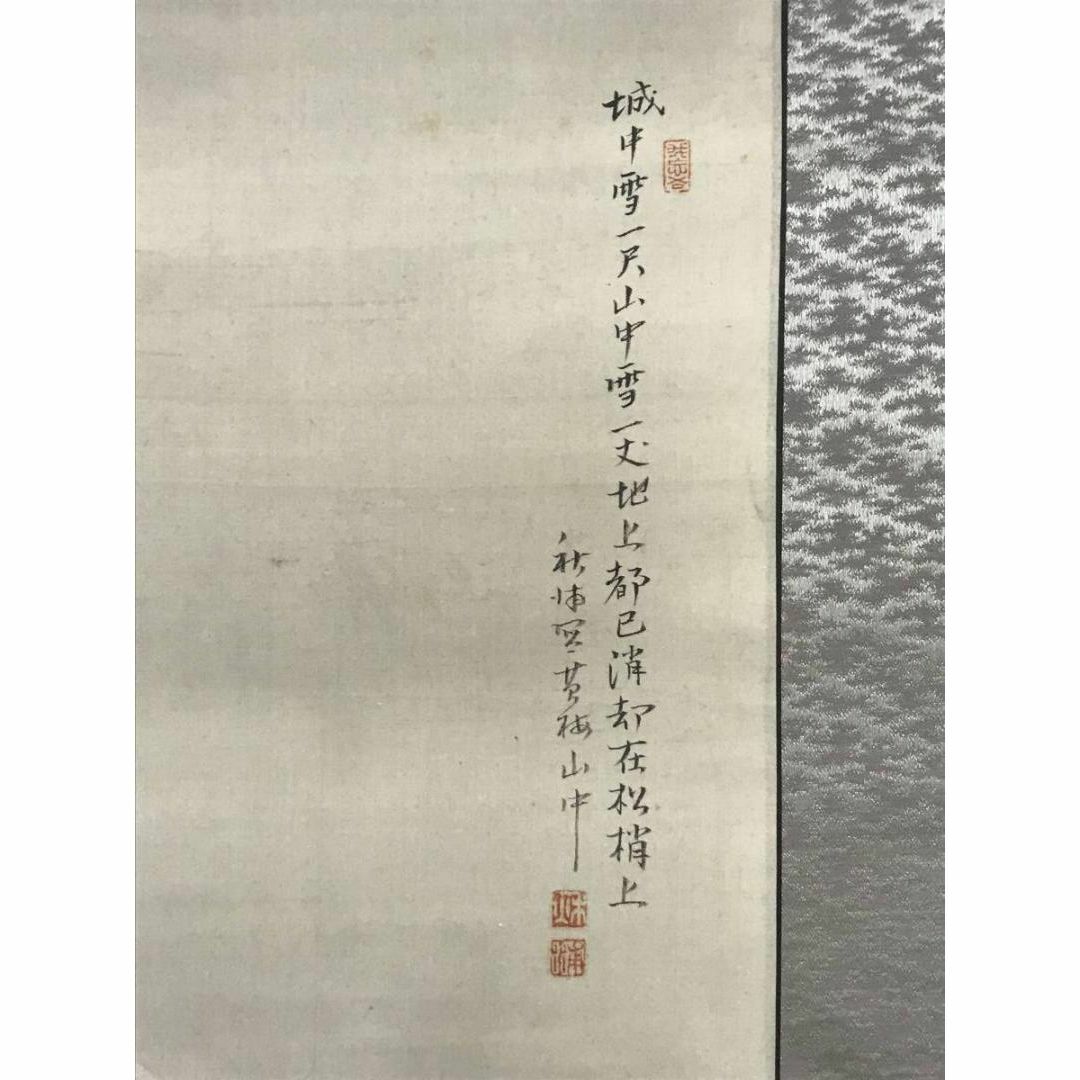 城中雪一尺山中雪一丈地上都已消却在松梢上
秋浦写黄梅山中